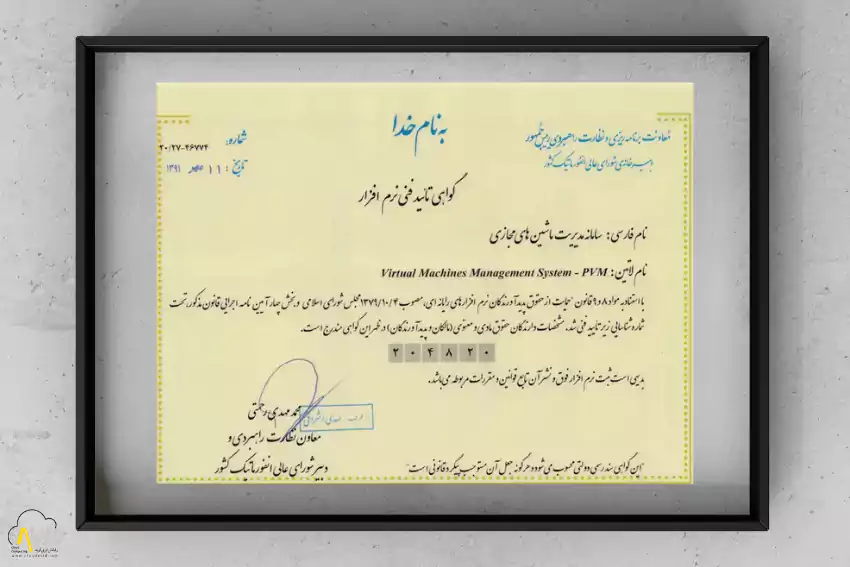 به نام خدا
معاونت برنامه ریزی و نظارت راهبردی رییس جمهور
دبیرخانه شورای عالی انفورماتیک کشور
شماره: ۲۰/۲۷-۴۶۷۷۴
تاریخ: ۱۱ ۱۳۹۱
گواهی تائید فنی نرم افزار
نام فارسی: سامانه مدیریت ماشین های مجازی
نام لاتین: Virtual Machines Management System - PVM
با استناد به مواد ۸ و ۹ قانون حمایت از حقوق پدیدآورندگان نرم افزارهای رایانه ای، مصوب ۱۳۷۹/۱۰/۴ مجلس شورای اسلامی و بخش چهار آیین نامه اجرایی قانون مذکور، تحت
شماره شناسایی زیر تایید فنی شد، مشخصات دارندگان حقوق مادی و معنوی (مالکان و پدیدآورندگان) در ظهر این گواهی مندرج است.
۲۰۴۸۲۰
بدیهی است ثبت نرم افزار فوق و نشر آن تابع قوانین و مقررات مربوطه می باشد.
محمد مهدی رحمتی
معاون نظارت راهبردی و
دبیر شورای عالی انفورماتیک کشور
"این گواهی سند رسمی دولتی محسوب می شود و هرگونه جعل آن مستوجب پیگرد قانونی است"